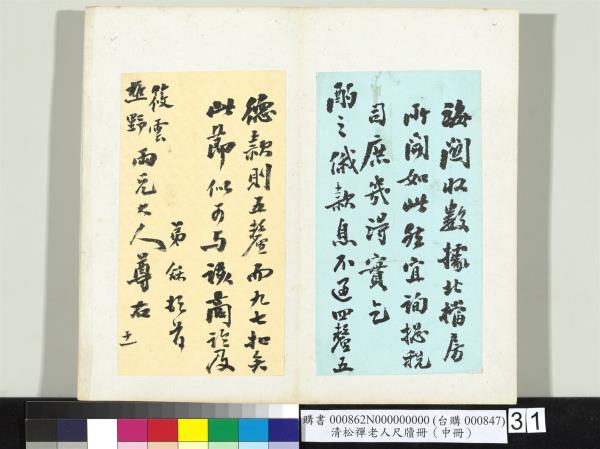 海關收數據北檔房
所開如此然宜詢總稅
司庶幾得實乞
酌之俄款息不過四釐五
德款則五釐而九七扣矣
此節似可與該商論及
筱雲
樵野兩兄大人尊右
弟 龢頓首
十一
購書 000862N000000000 (台購 000847)
清松禪老人尺牘冊（中冊）
31